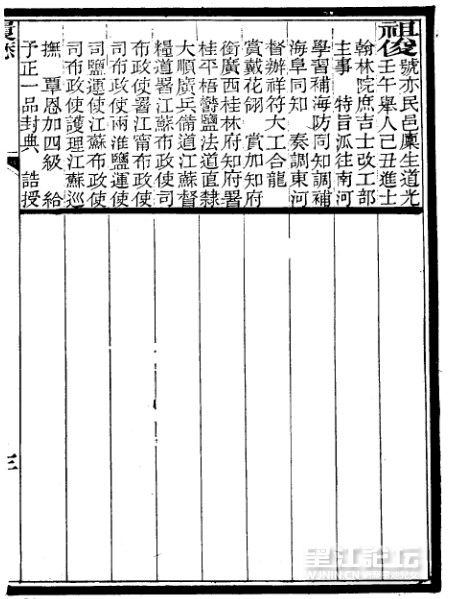 祖俊
號亦民邑廩生道光
壬午舉人己丑進士
翰林院庶吉士改工部
主事 特旨派往南河
學習補海防同知調補
海阜同知 奏調東河
督辦祥符大工合龍
賞戴花翎 賞加知府
銜廣西桂林府知府署
桂平梧鬱鹽法道直隸
大順廣兵備道江蘇督
糧道署江蘇布政使司
布政使署江甯布政使
司布政使兩淮鹽運使
司鹽運使江蘇布政使
司布政使護理江蘇巡
撫 覃恩加四級 給
予正一品封典 誥授
三